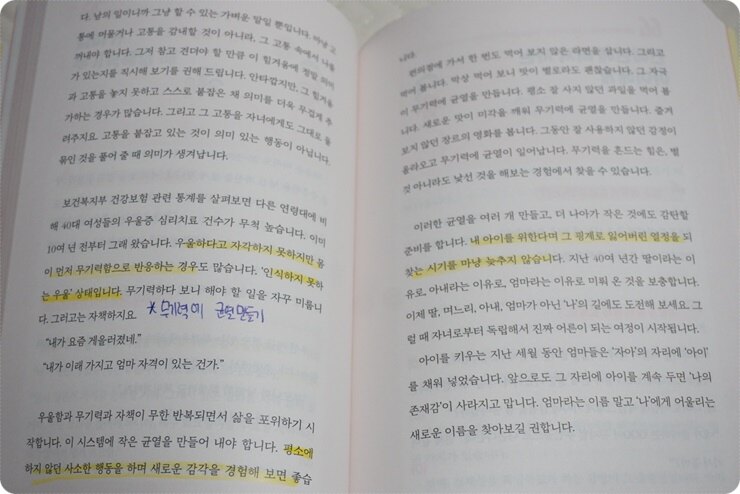 다. 남의 일이니까 그냥 할 수 있는 가벼운 말일 뿐입니다. 마냥 고
통에 머물거나 고통을 감내할 것이 아니라, 그 고통 속에서 나를
꺼내야 합니다. 그저 참고 견뎌야 할 만큼 이 힘겨움에 정말 의미
가 있는지를 직시해 보기를 권해 드립니다. 안타깝지만, 그 힘겨움
과 고통을 놓지 못하고 스스로 붙잡은 채 의미를 더욱 무겁게 추
가하는 경우가 많습니다. 그리고 그 고통을 자녀에게도 그대로 물
려주지요. 고통을 붙잡고 있는 것이 의미 있는 행동이 아닙니다.
묶인 것을 풀어 줄 때 의미가 생겨납니다.
보건복지부 건강보험 관련 통계를 살펴보면 다른 연령대에 비
해 40대 여성들의 우울증 심리치료 건수가 무척 높습니다. 이미
10여 년 전부터 그래 왔습니다. 우울하다고 자각하지 못하지만 몸
이 먼저 무기력함으로 반응하는 경우도 많습니다. ‘인식하지 못하
는 우울’ 상태입니다. 무기력하다 보니 해야 할 일을 자꾸 미룹니
다. 그러고는 자책하지요. * 무기력에 균열 만들기
“내가 요즘 게을러졌네.”
“내가 이래 가지고 엄마 자격이 있는 건가.”
우울함과 무기력과 자책이 무한 반복되면서 삶을 포위하기 시
작합니다. 이 시스템에 작은 균열을 만들어 내야 합니다. 평소에
하지 않던 사소한 행동을 하며 새로운 감각을 경험해 보면 좋습
니다.
편의점에 가서 한 번도 먹어 보지 않은 라면을 삽니다. 그리고
먹어 봅니다. 막상 먹어 보니 맛이 별로라도 괜찮습니다. 그 자극
이 무기력에 균열을 만듭니다. 평소 잘 사지 않던 과일을 먹어 봅
니다. 새로운 맛이 미각을 깨워 무기력에 균열을 만듭니다. 즐겨
보지 않던 장르의 영화를 봅니다. 그동안 잘 사용하지 않던 감정이
올라오고 무기력에 균열이 일어납니다. 무기력을 흔드는 힘은, 별
것 아니라도 낯선 것을 해보는 경험에서 찾을 수 있습니다.
이러한 균열을 여러 개 만들고, 더 나아가 작은 것에도 감탄할
준비를 합니다. 내 아이를 위한다며 그 핑계로 잃어버린 열정을 되
찾는 시기를 마냥 늦추지 않습니다. 지난 40여 년간 딸이라는 이
유로, 아내라는 이유로, 엄마라는 이유로 미뤄 온 것을 보충합니다.
이제 딸, 며느리, 아내, 엄마가 아닌 ‘나’의 길에도 도전해 보세요. 그
럴 때 자녀로부터 독립해서 진짜 어른이 되는 여정이 시작됩니다.
아이를 키우는 지난 세월 동안 엄마들은 ‘자아’의 자리에 ‘아이’
를 채워 넣었습니다. 앞으로도 그 자리에 아이를 계속 두면 ‘나의
존재감’이 사라지고 맙니다. 엄마라는 이름 말고 ‘나’에게 어울리는
새로운 이름을 찾아보길 권합니다.